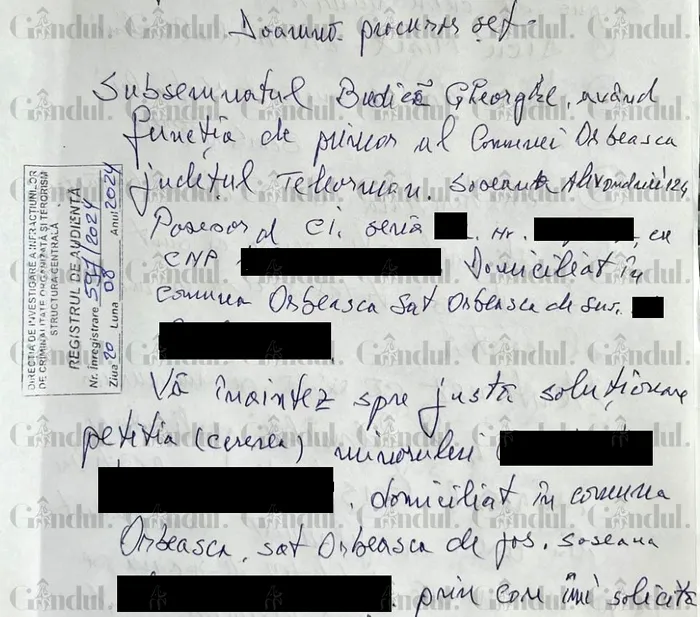 Doamnă procuror șef
Subsemnatul Budică Gheorghe, având
funcția de primar al Comunei Orbeasca
județul Teleorman. Șoseaua Alexandriei 124
Posesor al CI. seria nr. cu
CNP Domiciliat în
comuna Orbeasca sat Orbeasca de Sus.
Vă înaintez spre justă soluționare
petiția (cererea) minorului (
, domiciliat în comuna
Orbeasca, sat Orbeasca de jos. soseaua
prin care îmi solicită
DIRECȚIA DE INVESTIGARE A INFRACȚIUNILOR
DE CRIMINALITATE ORGANIZATĂ ȘI TERORISM
STRUCTURA CENTRALĂ
REGISTRUL DE AUDIENȚĂ
Nr. înregistrare 597/2024
Ziua 20 Luna 08 Anul 2024
Gândul.